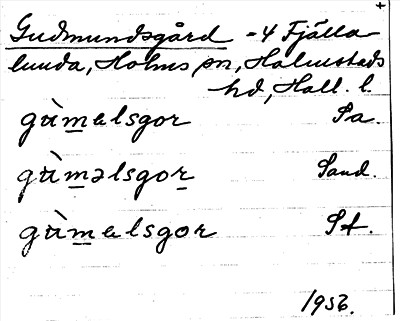 +
Gudmundsgård - 4 Fjälla
lunda, Holms sn, Halmstads
hd, Hall. l.
gùm̲alsgor Sa.
gùm̲əlsgor̲ Sand.
gùm̲alsgor St.
1956.